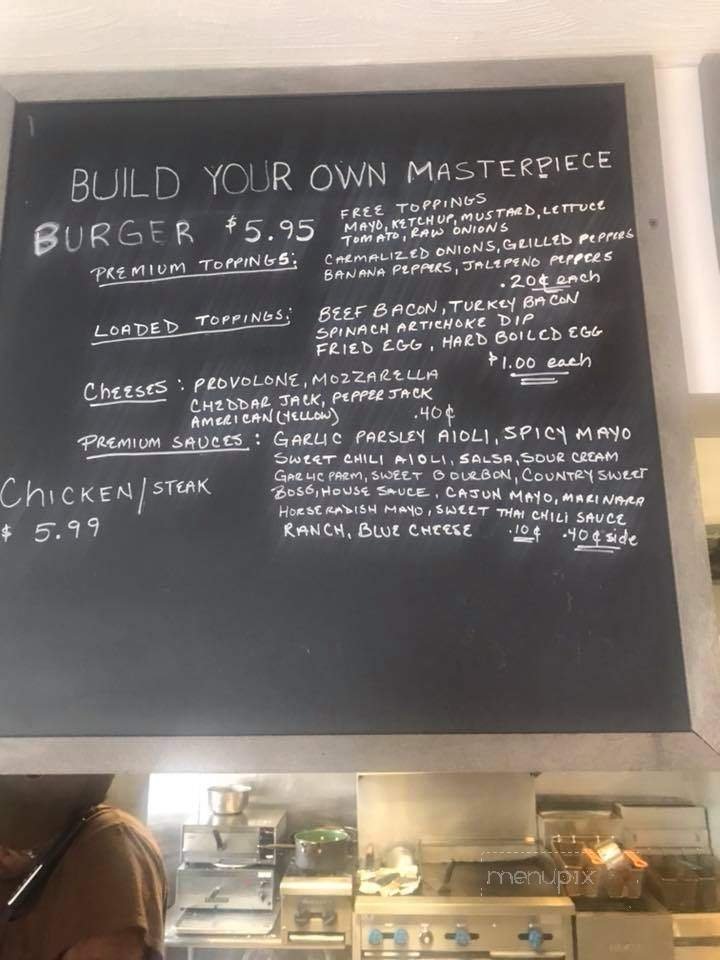 BUILD YOUR OWN MASTERPIECE
BURGER $5.95
FREE TOPPINGS
MAYO, KETCHUP, MUSTARD, LETTUCE
TOMATO, RAW ONIONS
PREMIUM TOPPINGS:
CARMALIZED ONIONS, GRILLED PEPPERS
BANANA PEPPERS, JALEPENO PEPPERS
.20¢ each
LOADED TOPPINGS:
BEEF BACON, TURKEY BACON
SPINACH ARTICHOKE DIP
FRIED EGG, HARD BOILED EGG
$1.00 each
CHEESES: PROVOLONE, MOZZARELLA
CHEDDAR JACK, PEPPER JACK
AMERICAN (YELLOW) .40¢
PREMIUM SAUCES: GARLIC PARSLEY AIOLI, SPICY MAYO
SWEET CHILI AIOLI, SALSA, SOUR CREAM
GARLIC PARM, SWEET BOURBON, COUNTRY SWEET
BOSS, HOUSE SAUCE, CAJUN MAYO, MARINARA
HORSERADISH MAYO, SWEET THAI CHILI SAUCE
RANCH, BLUE CHEESE .10¢ .40¢ side
CHICKEN/STEAK
$ 5.99
menupix